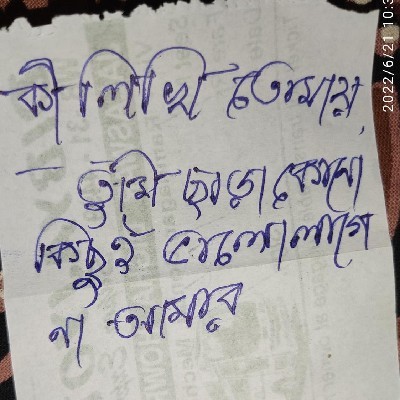 কী লিখি তোমায়
তুমি ছাড়া কোনো
কিছুই ভালোলাগে
না আমার
2022/6/21 10:3